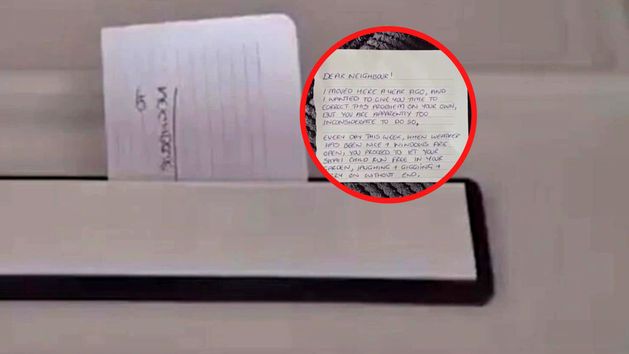 DEAR NEIGHBOUR!
I MOVED HERE A YEAR AGO, AND
I WANTED TO GIVE YOU TIME TO
CORRECT THIS PROBLEM ON YOUR OWN,
BUT YOU ARE APPARENTLY TOO
INCONSIDERATE TO DO SO.
EVERY DAY THIS WEEK, WHEN WEATHER
HAS BEEN NICE + WINDOWS ARE
OPEN, YOU PROCEED TO LET YOUR
SMALL CHILD RUN FREE IN YOUR
GARDEN, LAUGHING + GIGGING +
ON WITHOUT END.